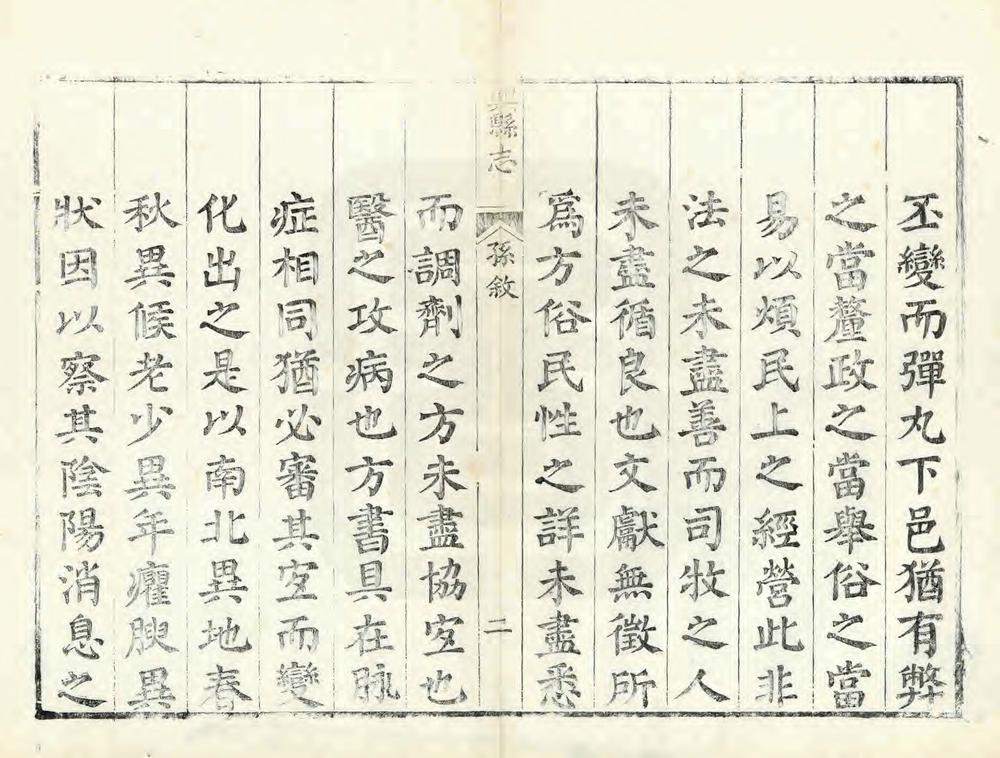 丕變而彈丸下邑猶有弊
之當釐政之當舉俗之當
易以煩民上之經營此非
法之未盡善而司牧之人
未盡循良也文獻無徵所
爲方俗民性之詳未盡悉
興縣志
孫敘
二
而調劑之方未盡協宐也
醫之攻病也方書具在脉
症相同猶必審其宐而變
化出之是以南北異地春
秋異候老少異年癯腴異
狀因以察其陰陽消息之